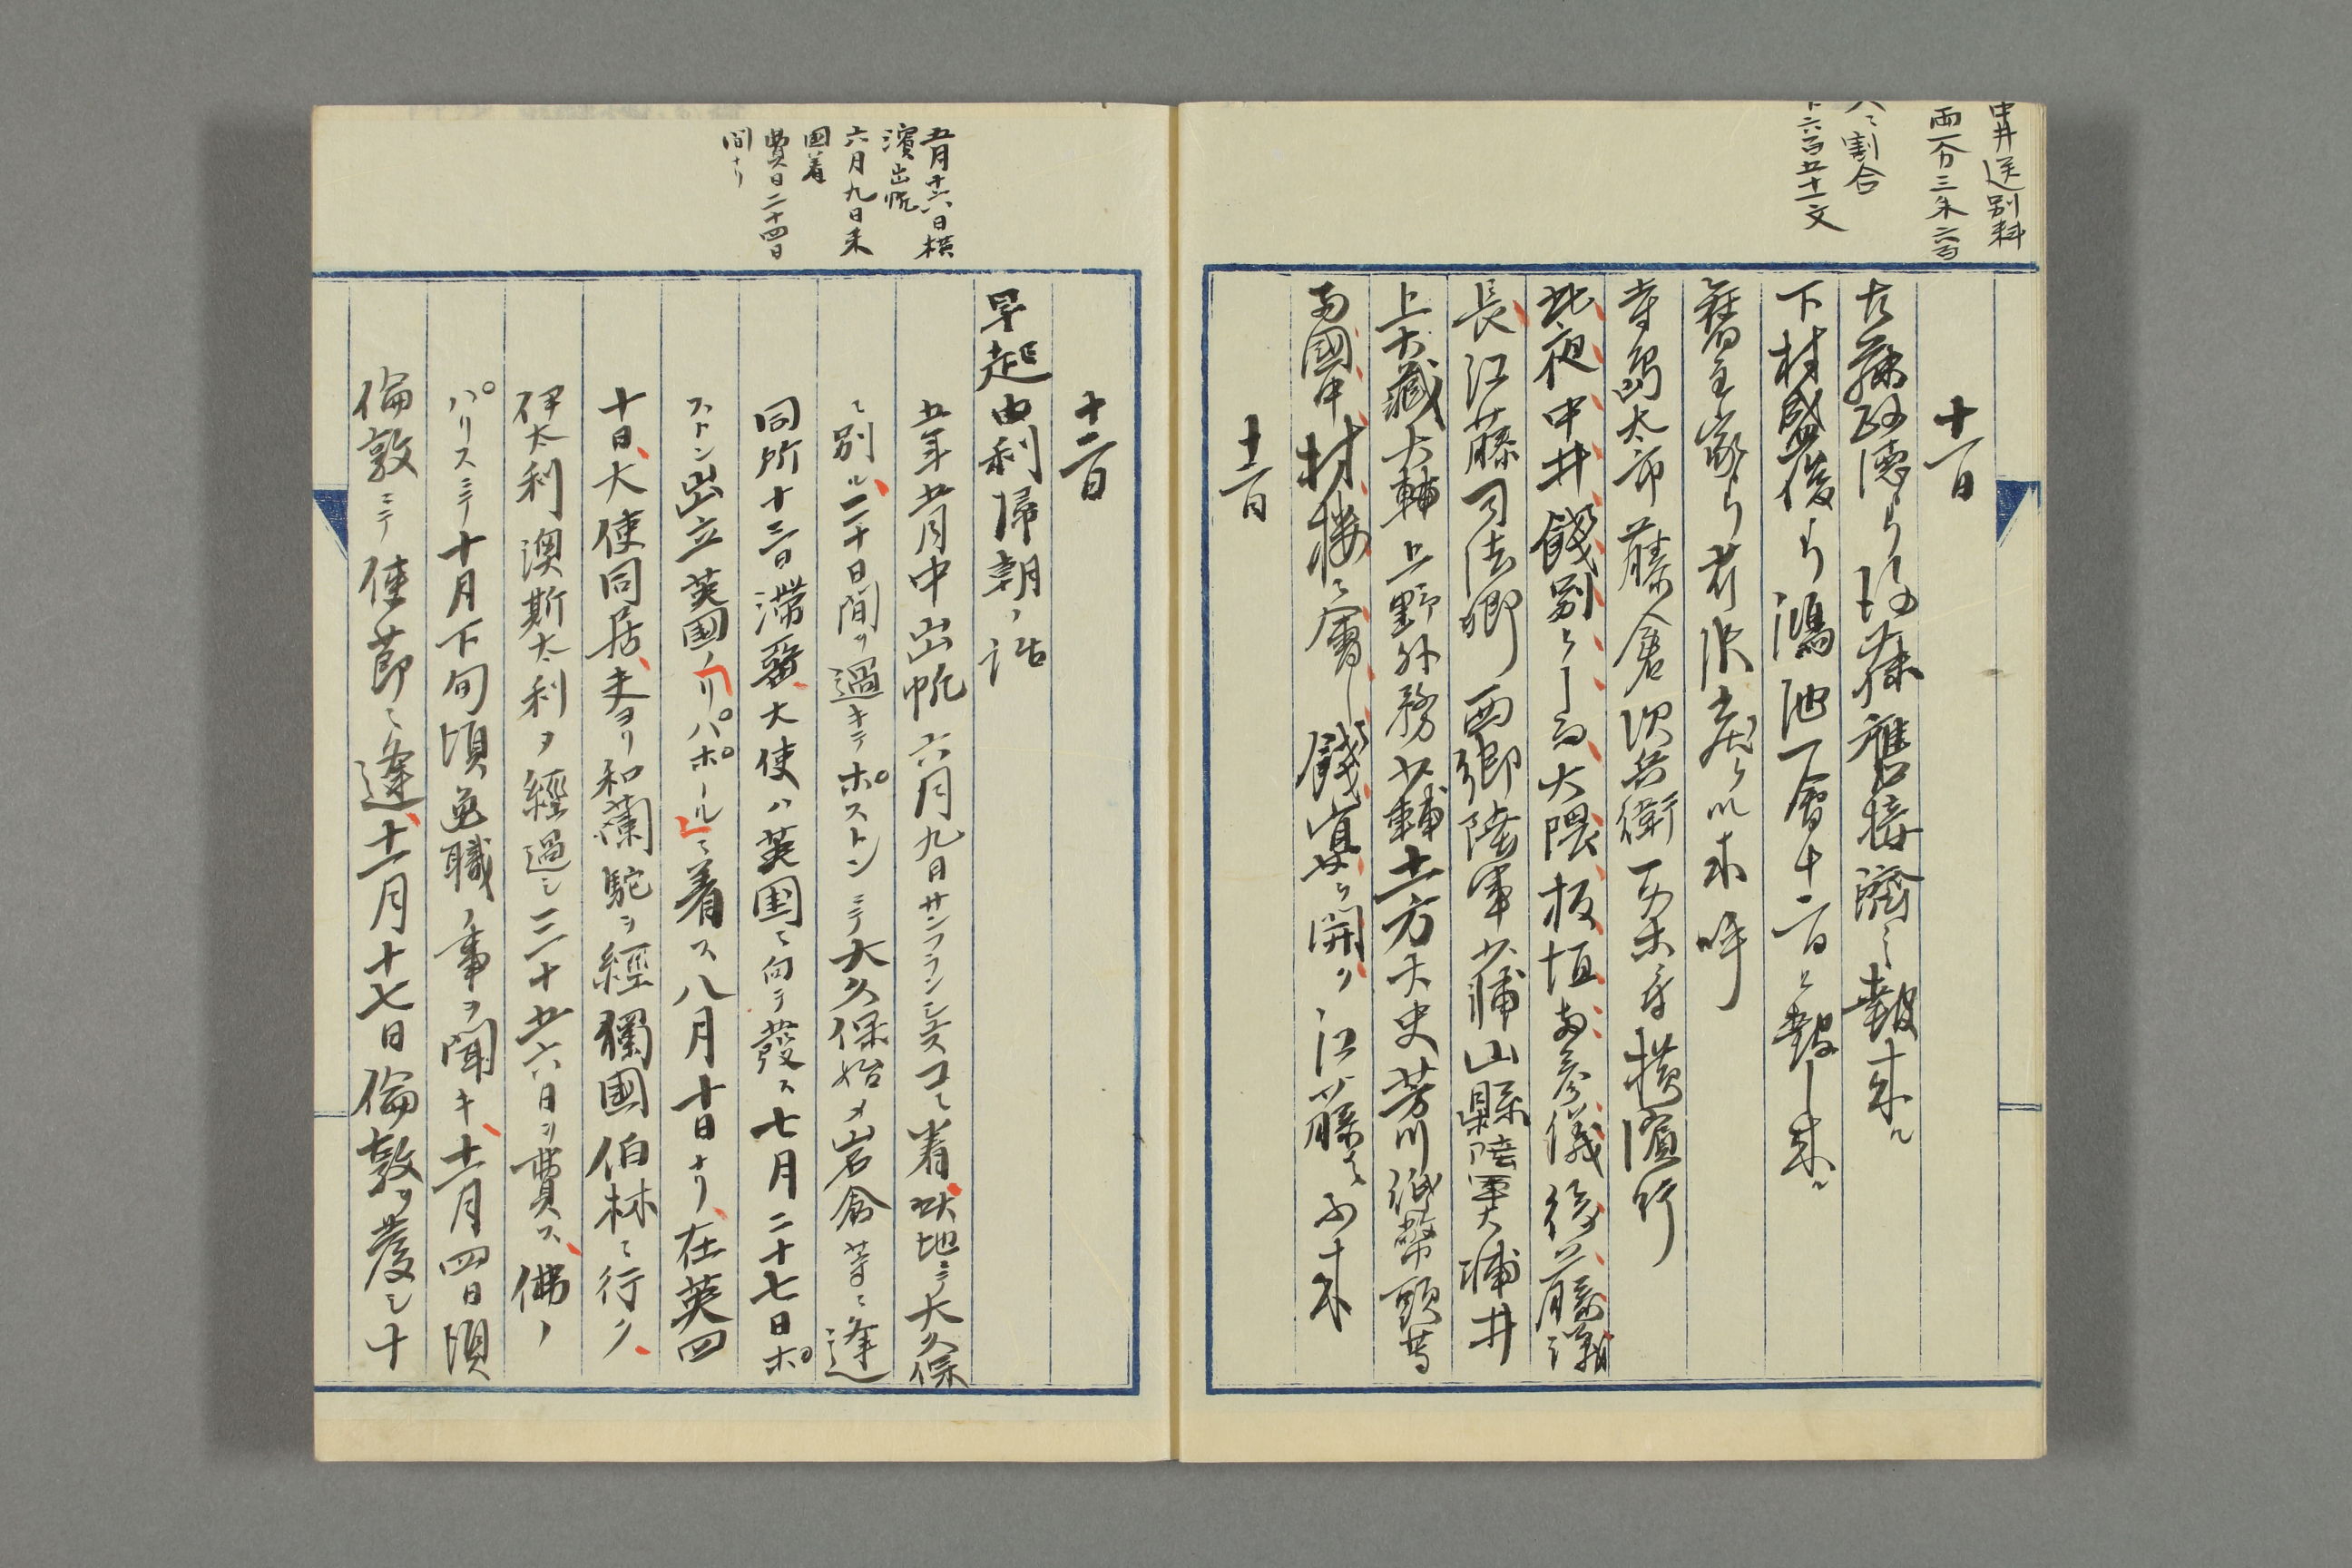 中井送別料
両一分三朱六百
人ニ割合
ト六百五十一文
十一日
下村盛俊ゟ鴻池一會十二日ト報シ来ル
寺島太郎藤倉次兵衛 横濱行
此夜中井餞別 大隈板垣両参儀後藤議
長江藤司法卿西郷陸軍少輔山縣陸軍大輔井
上大蔵大輔上野外務少輔土方大史芳川紙幣頭等
両國中村楼ニ會シ餞宴ヲ開ク江藤ハ不来
十二日
五月十六日横
濱出帆
六月九日米
国着
費日二十四日
間ナリ
十二日
早起由利帰朝ノ話
五年五月中出帆六月九日サンフランシスコニ着状地ニテ大久保
ニ別ル二十日間ヲ過キテポストンニテ大久保始メ岩倉等ニ逢
同所十三日滞留大使ハ英国ニ向テ發ス七月二十七日ポ
ストン出立英国ノリパポールニ着ス八月十日ナリ在英四
十日大使同居夫ヨリ和蘭駝ヲ經獨國伯林ニ行ク
伊太利澳斯太利ヲ經過シ三十五六日ヲ費ス佛ノ
パリスニテ十月下旬頃免職ノ事ヲ聞キ十一月四日頃
倫敦ニテ使節ニ逢十一月十七日倫敦ヲ發シ十